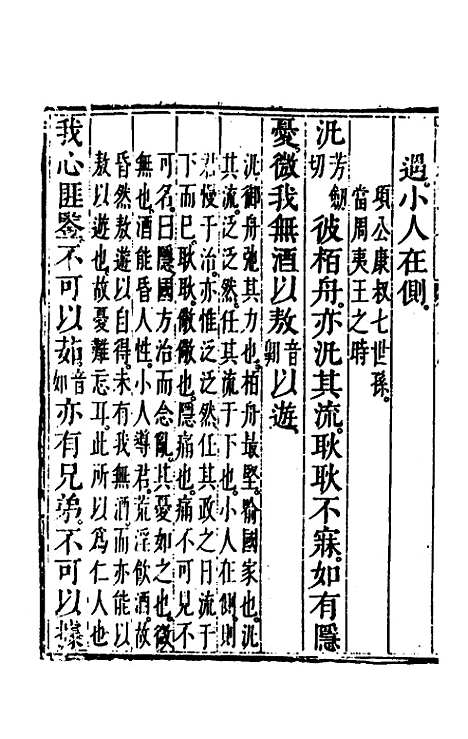 遇。小人在側。
頃公康叔七世孫。
當周夷王之時
汎芳劔切彼栢舟。亦汎其流。耿耿不寐。如有隱
憂。微我無酒以敖音翺以遊。
汎御舟弛其力也。栢舟最堅。喻國家也。汎
其流。泛泛然任其流于下也。小人在側。則
君慢于治。亦惟泛泛然任其政之日流于
下而已。耿耿。儆儆也。隱痛也。痛不可見不
可名。曰隱。國方治而念亂。其憂如之也。微
無也。酒能昏人性。小人導君荒淫飲酒。故
昏然敖遊以自得。未有我無酒而亦能以
敖以遊也。故憂難忘耳。此所以為仁人也
我心匪鑒。不可以茹音如亦有兄弟。不可以據